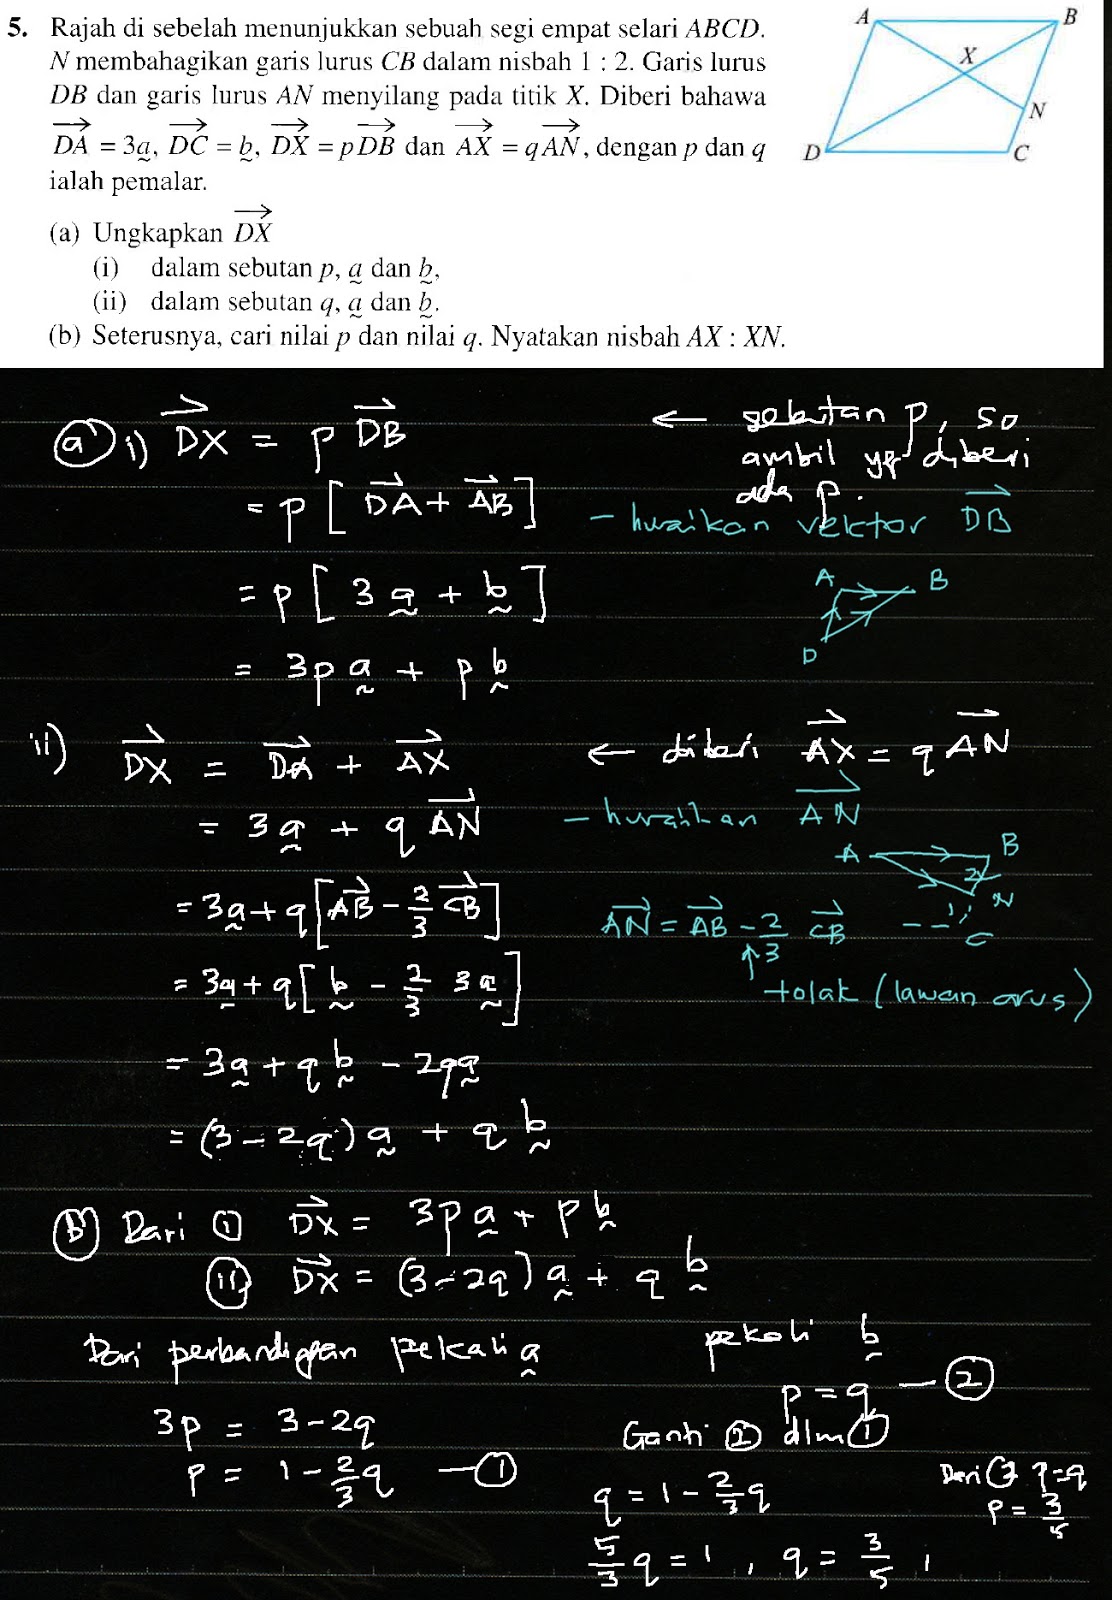 5. Rajah di sebelah menunjukkan sebuah segi empat selari ABCD.
N membahagikan garis lurus CB dalam nisbah 1 : 2. Garis lurus
DB dan garis lurus AN menyilang pada titik X. Diberi bahawa
$\overrightarrow{DA}$ = 3a̰, $\overrightarrow{DC}$ = b̰, $\overrightarrow{DX}$ = p$\overrightarrow{DB}$ dan $\overrightarrow{AX}$ = q$\overrightarrow{AN}$, dengan p dan q
ialah pemalar.
(a) Ungkapkan $\overrightarrow{DX}$
(i) dalam sebutan p, a̰ dan b̰,
(ii) dalam sebutan q, a̰ dan b̰.
(b) Seterusnya, cari nilai p dan nilai q. Nyatakan nisbah AX : XN.
A B
X
N
D C
a) i) $\overrightarrow{DX}$ = p $\overrightarrow{DB}$ ← sebutan p, so
ambil yg diberi
ada p.
= p [ $\overrightarrow{DA}$ + $\overrightarrow{AB}$ ] – huraikan vektor $\overrightarrow{DB}$
= p [ 3a̰ + b̰ ]
A B
D
= 3pa̰ + pb̰
ii) $\overrightarrow{DX}$ = $\overrightarrow{DA}$ + $\overrightarrow{AX}$ ← diberi $\overrightarrow{AX}$ = q $\overrightarrow{AN}$
= 3a̰ + q $\overrightarrow{AN}$ – huraikan $\overrightarrow{AN}$
A B
2
N
C
= 3a̰ + q [ $\overrightarrow{AB}$ – 2/3 $\overrightarrow{CB}$ ] $\overrightarrow{AN}$ = $\overrightarrow{AB}$ – 2/3 $\overrightarrow{CB}$
= 3a̰ + q [ b̰ – 2/3 3a̰ ] ↑ tolak (lawan arus)
= 3a̰ + qb̰ – 2qa̰
= (3 – 2q)a̰ + qb̰
b) Dari (i) $\overrightarrow{DX}$ = 3pa̰ + pb̰
(ii) $\overrightarrow{DX}$ = (3 – 2q)a̰ + qb̰
Dari perbandingan pekali a̰
3p = 3 – 2q
p = 1 – 2/3 q — ①
pekali b̰
p = q — ②
Ganti ② dlm ①
q = 1 – 2/3 q
5/3 q = 1, q = 3/5,
Dari ② p = q
p = 3/5